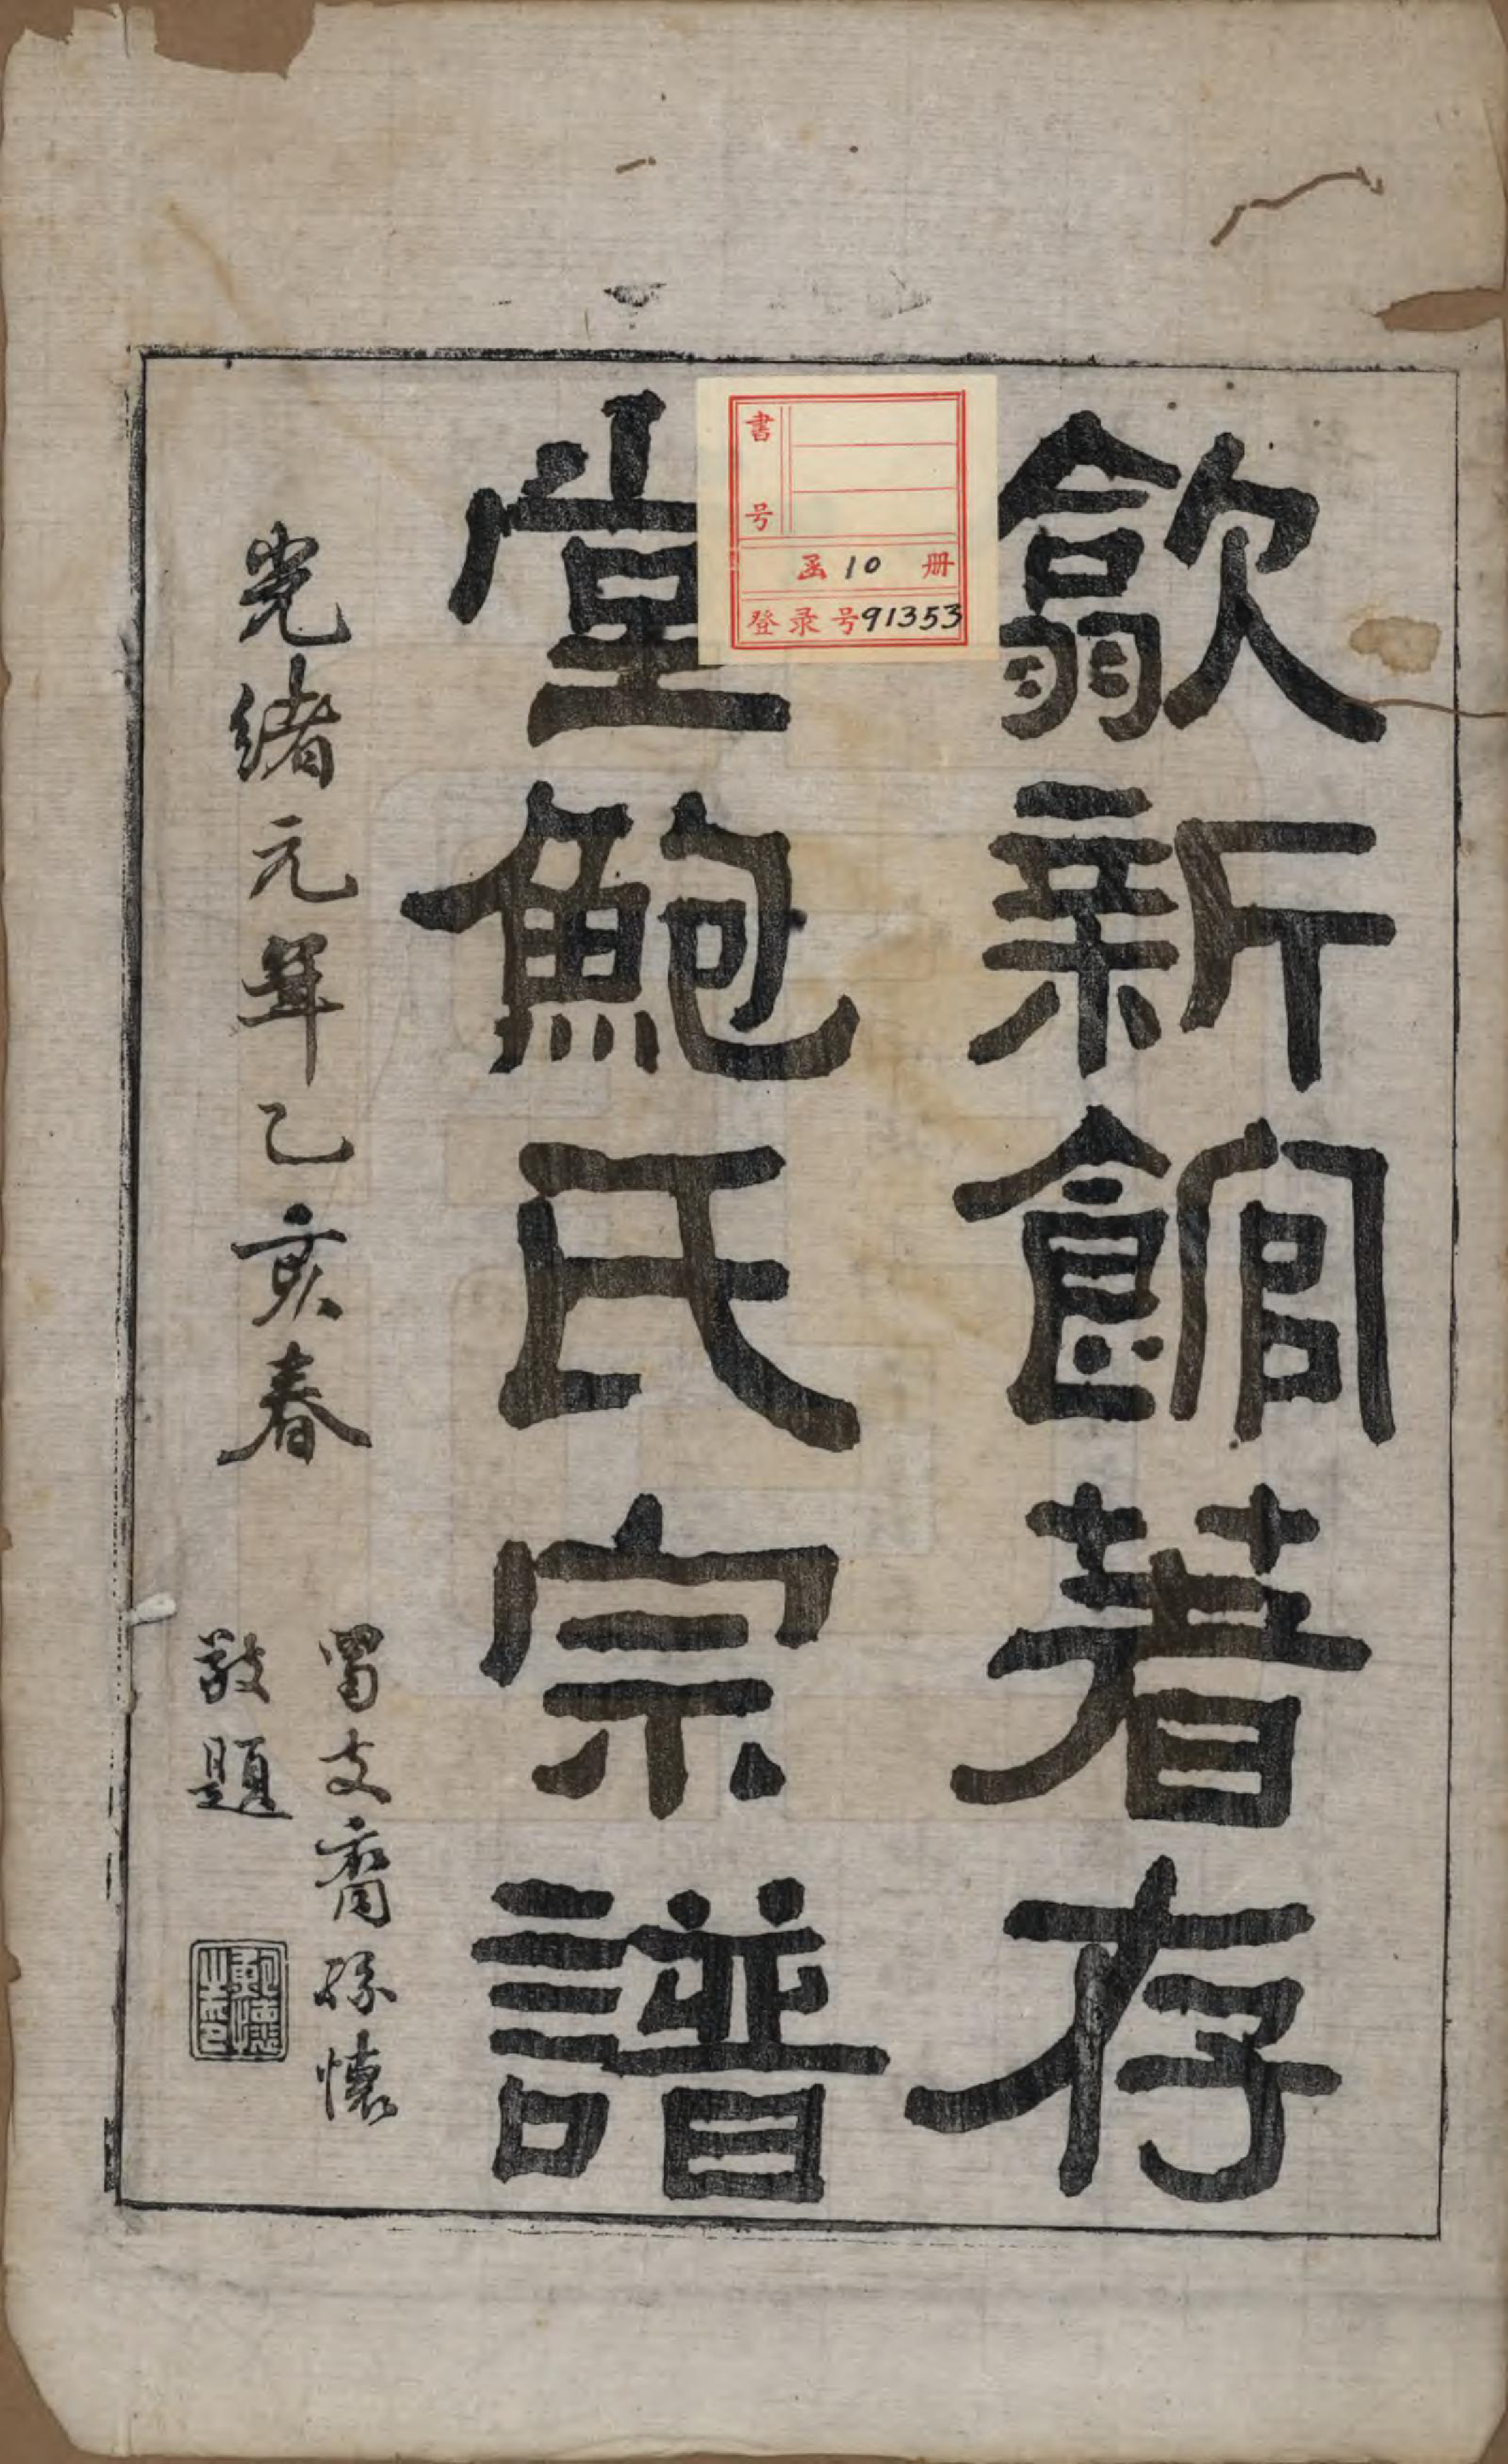 歙新館著存
堂鮑氏宗譜
光緒元年乙亥春
蜀支裔孫懷
敬題
書号
函 10 册
登录号91353